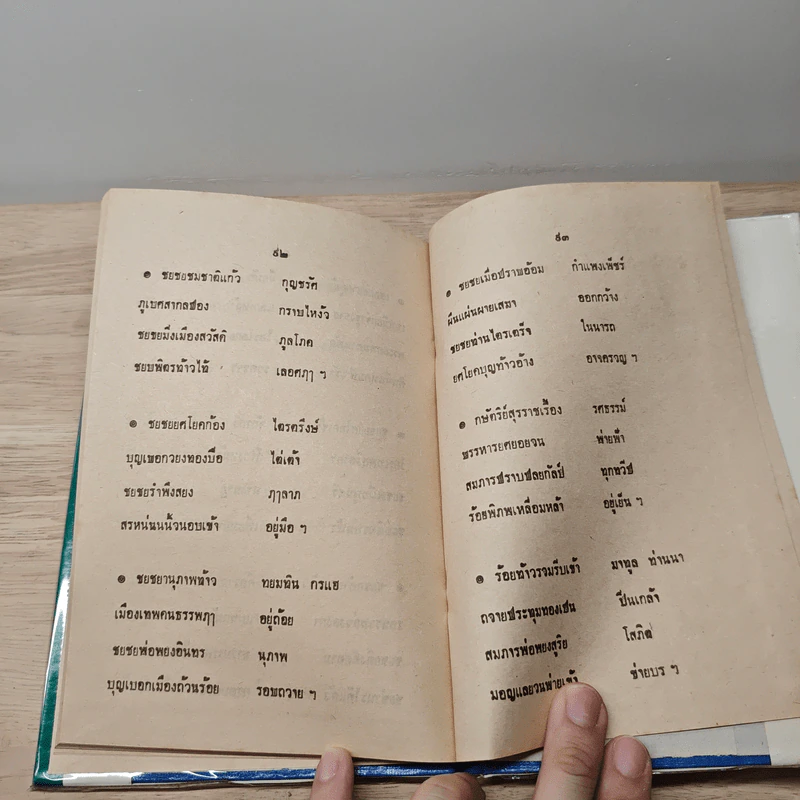 ๙๒
๏ ชยชยชมชาติแก้ว กุญชรัศ
ภูเบศสากลซ่อง กราบไหงัว
ชยชยมิ่งเมืองสวัสดิ ภูลโภค
ชยบพิตรท้าวไท้ เลอศฦๅ ฯ
๏ ชยชยยศโยคก้อง ไตรตรึงษ์
บุญเพอกวยงทองบือ ไต่เต้า
ชยชยรำพึงสยง ฦๅลาภ
สรหน่นนน้วนอบเข้า อยู่มือ ฯ
๏ ชยชยานุภาพท้าว ทยมทิน กรแฮ
เมืองเทพคนธรรพฦๅ อยู่ถ้อย
ชยชยพ่อพยงอินทร นุภาพ
บุญเบอกเมืองถ้วนร้อย รอพถวาย ฯ
๙๓
๏ ชยชยเมื่อปราพอ้อม กำแพงเพ็ชร์
ผืนแผ่นผายเสมา ออกกว้าง
ชยชยท่านไตรเตร็จ ในนารถ
ยศโยคบุญท้าวอ้าง อาจครวญ ฯ
๏ กษัตริย์สุรราชเรื้อง รศธรรม์
พรรหารยศยอยจน พ่ายฟ้า
สมภารปราบปลยกัลป์ ทุกทวีป
ร้อยพิภพเหลื่อมหล้า อยู่เย็น ฯ
๏ ร้อยท้าวรวมรีบเข้า มาทูล ท่านนา
ถจายประทุมทองเปน ปิ่นเกล้า
สมภารพ่อพยงสูริย โสภิต
มอญแลยวนพ่ายเข้า ข่ายบร ฯ